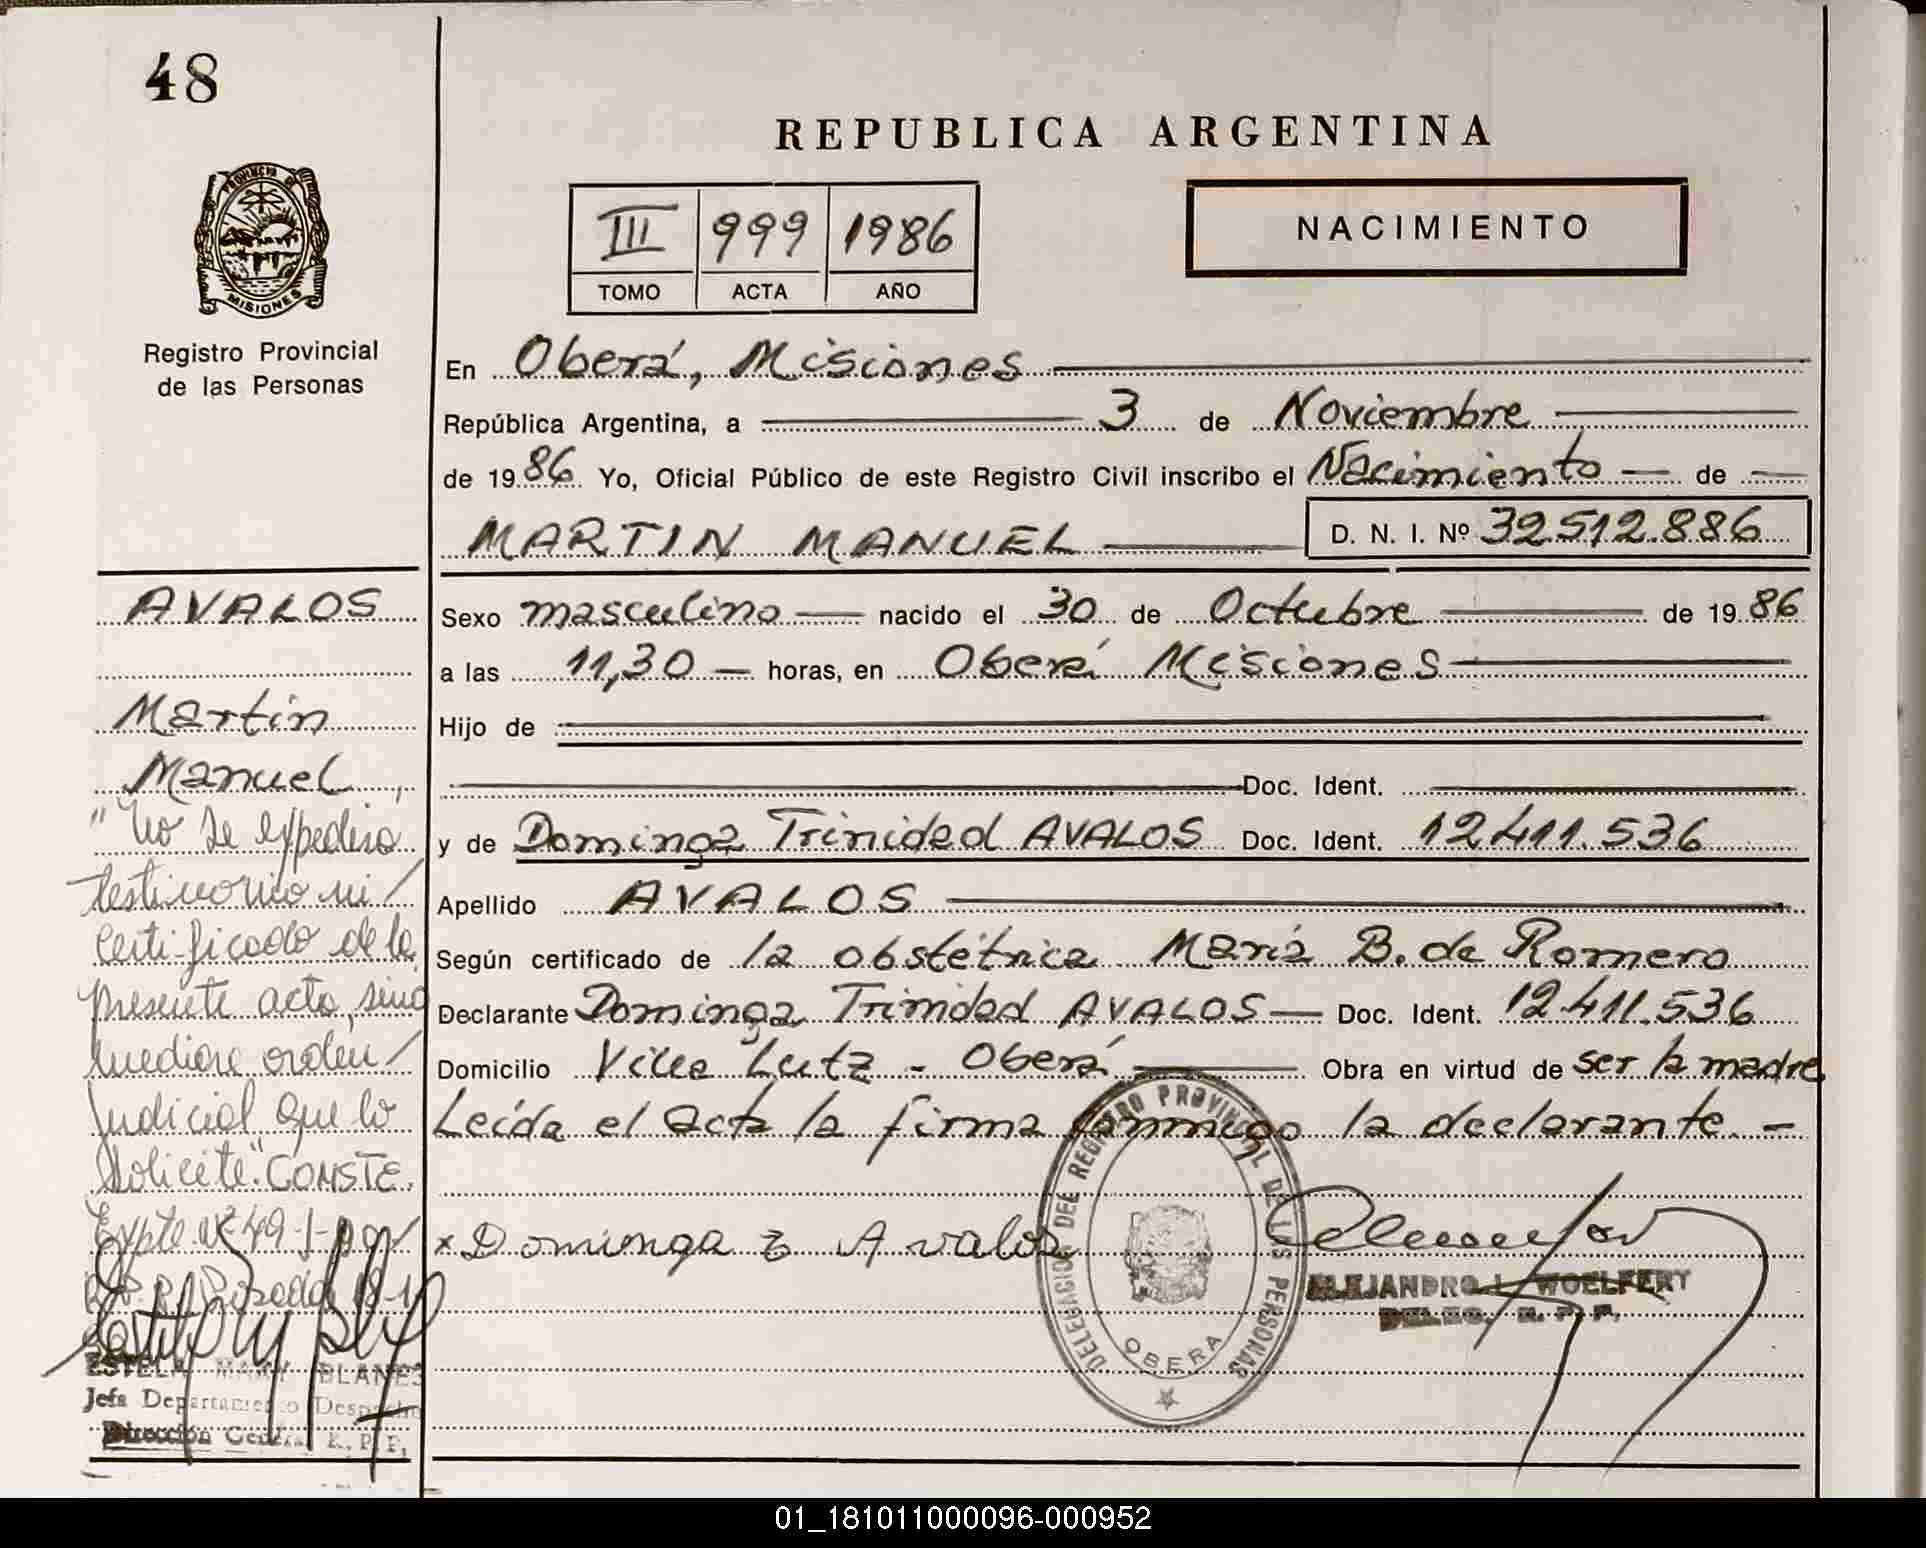 48
REPUBLICA ARGENTINA
PROVINCIA DE
MISIONES
III 999 1986
TOMO ACTA AÑO
NACIMIENTO
Registro Provincial
de las Personas
En Oberá, Misiones
República Argentina, a 3 de Noviembre
de 1986 Yo, Oficial Público de este Registro Civil inscribo el Nacimiento de
MARTIN MANUEL D. N. I. Nº 32.512.886
AVALOS
Martin
Manuel
"No se expedira
testimonio ni/
certificado de la
presente acta, sino
mediare orden/
Judicial que lo
solicite". CONSTE.
Expte
ESTELA MARY BLANES
Jefa Departamento Despacho
Dirección General R. P. P.
Sexo masculino nacido el 30 de Octubre de 1986
a las 11,30 horas, en Oberá Misiones
Hijo de
Doc. Ident.
y de Dominga Trinidad AVALOS Doc. Ident. 12.411.536
Apellido AVALOS
Según certificado de la obstétrica María B. de Romero
Declarante Dominga Trinidad AVALOS Doc. Ident. 12.411.536
Domicilio Villa Lutz - Oberá Obra en virtud de ser la madre
Leída el acta la firma conmigo la declarante. -
x Dominga T Avalos
DELEGACION DEL REGISTRO PROVINCIAL DE LAS PERSONAS
OBERA
ALEJANDRO L. WOELFERT
DELEG. R. P. P.
01_181011000096-000952